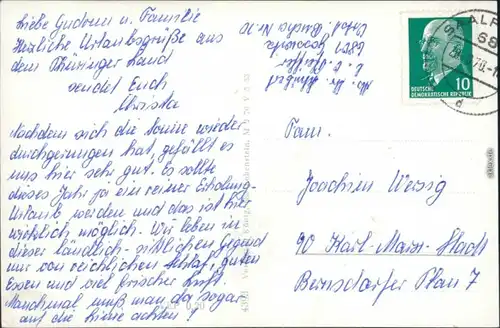 Liebe Gudrun u. Familie
Herzliche Urlaubsgrüße aus
dem Thüringer Land
sendet Euch
Christa
Nachdem sich die Sonne wieder
durchgerungen hat, gefällt es
uns hier sehr gut. Es sollte
dieses Jahr ja ein reiner Erholungs-
Urlaub werden und das ist hier
wirklich möglich. Wir leben in
dieser ländlich-sittlichen Gegend
nur von reichlichen Schlaf, guten
Essen und viel frischer Luft.
Manchmal muß man da sogar
auf die Linie achten!
6801
Nr. 20
DEUTSCHE
DEMOKRATISCHE REPUBLIK
10
SAALF
68
d
Fam.
Joachim Wersig
90 Karl-Marx-Stadt
Bernsdorfer Platz 7